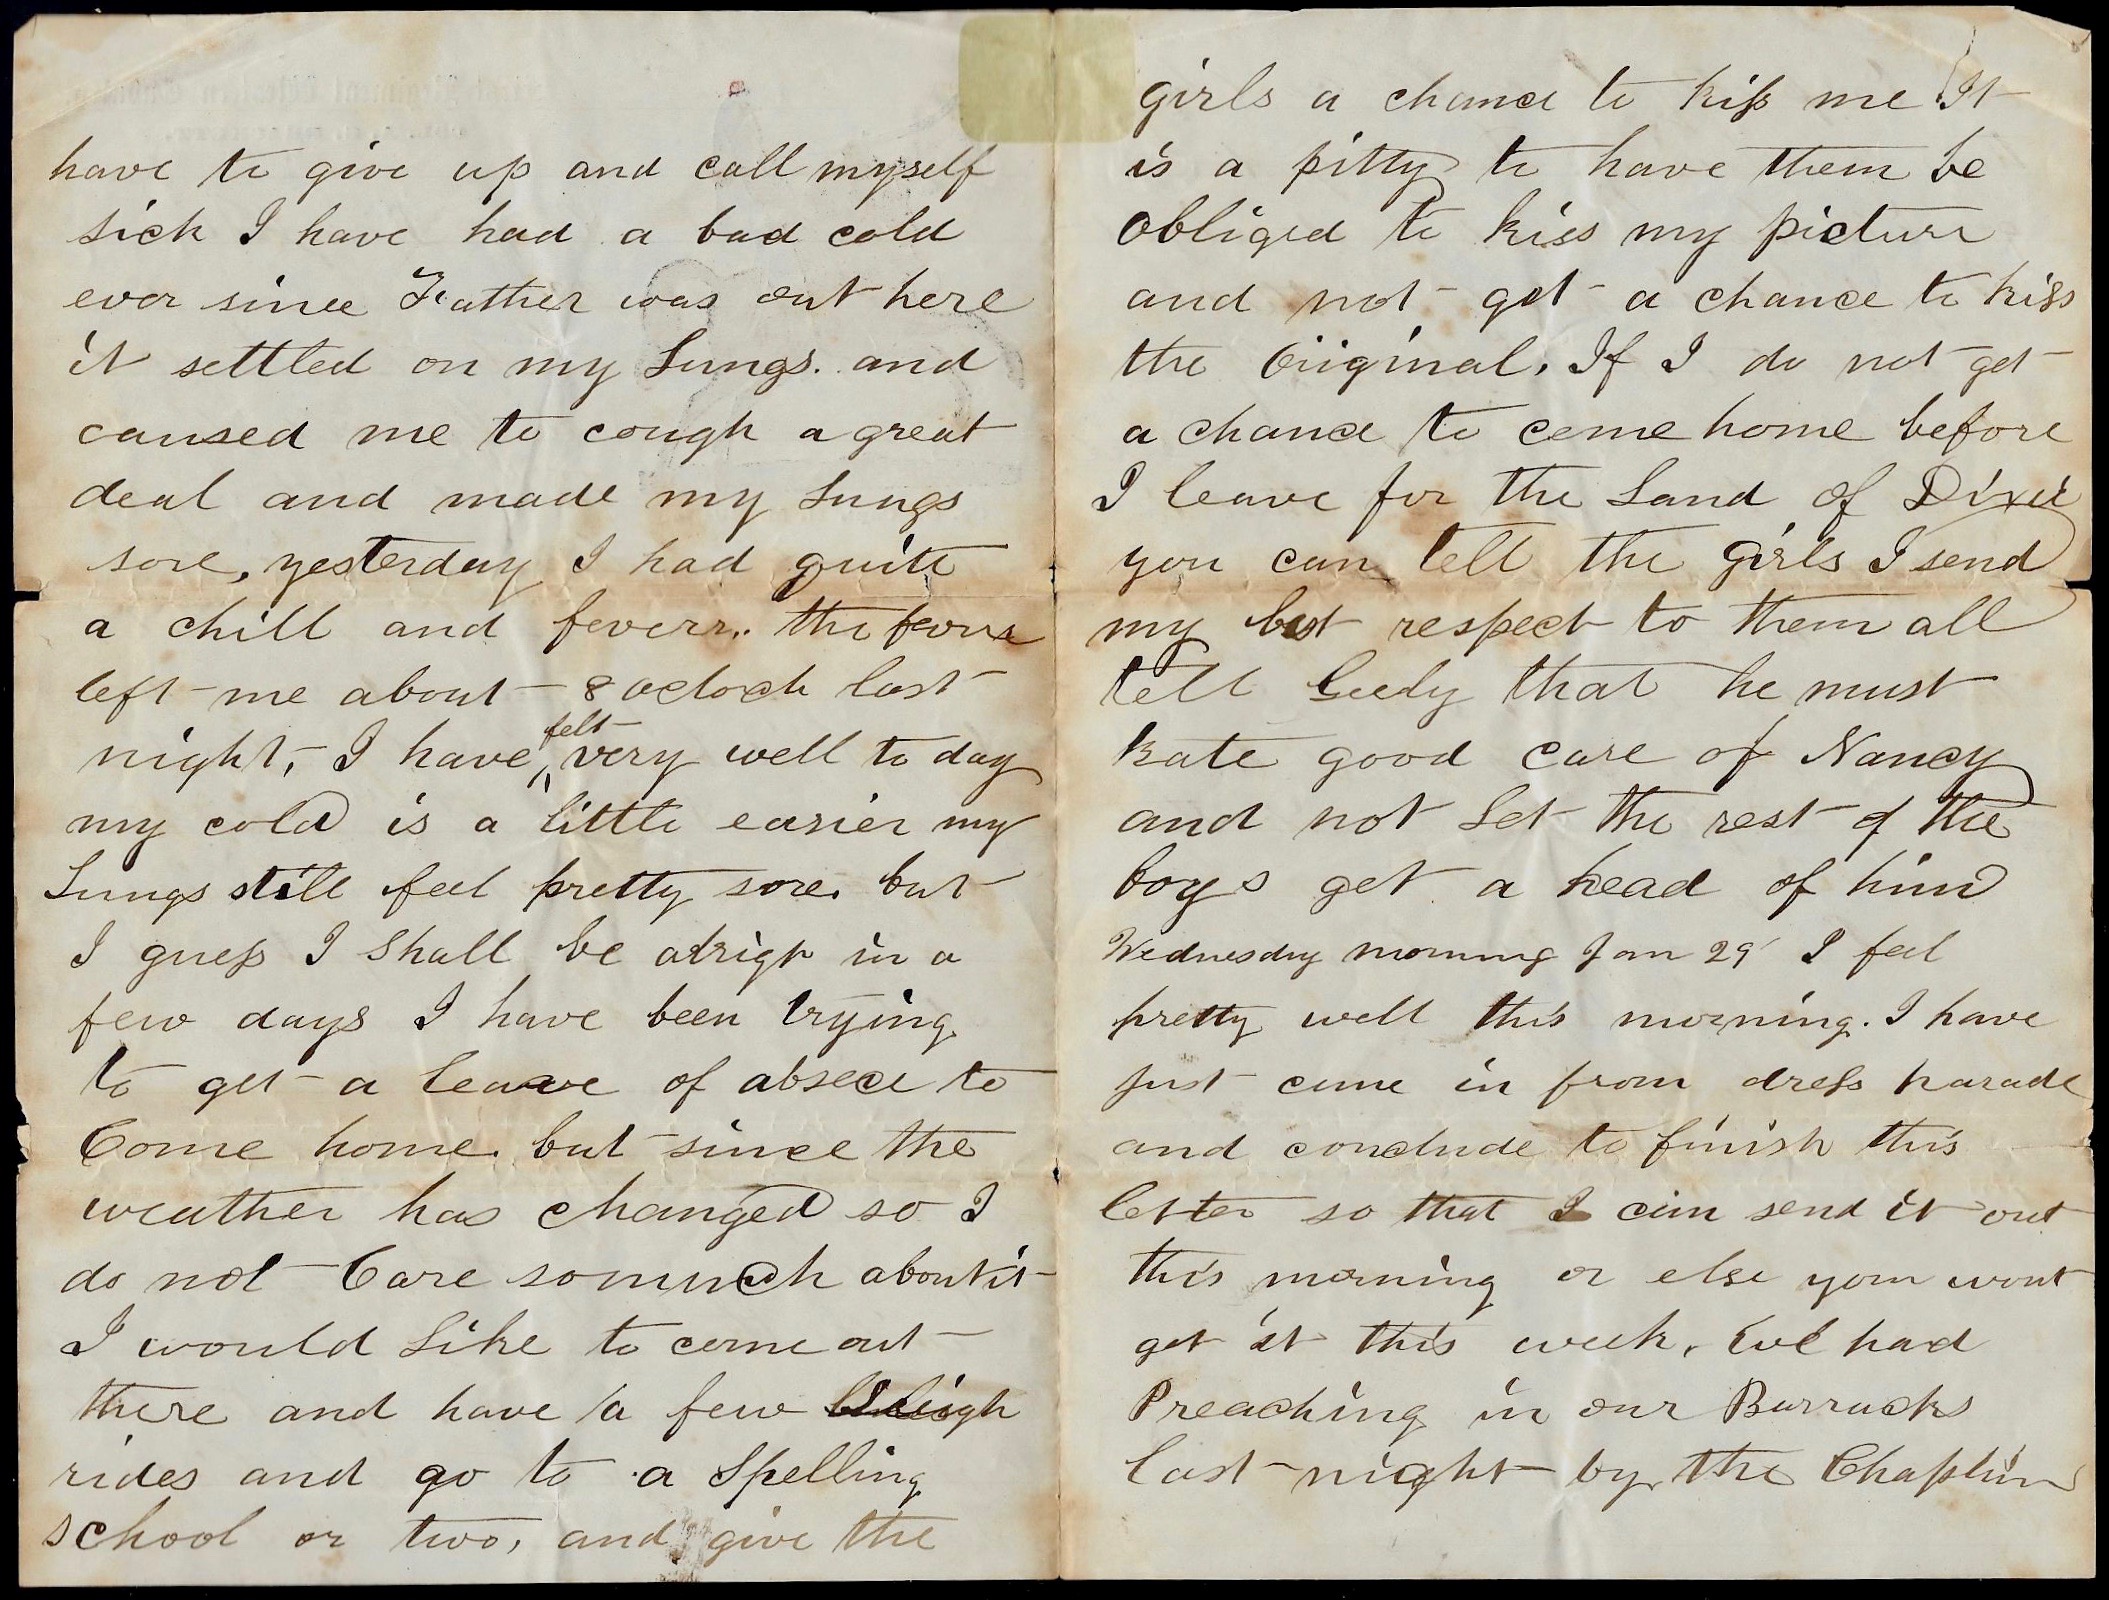 have to give up and call myself
sick I have had a bad cold
ever since Father was out here
it settled on my Lungs. and
caused me to cough a great
deal and made my Lungs
sore, yesterday I had quite
a chill and feverr.. the fever
left me about 8 oclock last
night, I have felt very well to day
my cold is a little easier my
Lungs still feel pretty sore. but
I guess I shall be alrigh in a
few days I have been trying
to get a leave of absece to
Come home. but since the
weather has changed so I
do not Care somuch about it
I would Like to come out
there and have a few Sleigh
rides and go to a Spelling
school or two, and give the
girls a chance to kiss me It
is a pitty to have them be
obliged to kiss my picture
and not get a chance to kiss
the Original. If I do not get
a chance to come home before
I leave for the Land of Dixie
you can tell the girls I send
my best respect to them all
tell that he must
take good care of Nancy
and not Let the rest of the
boys get a head of him
Wednesday morning Jan 29 I feel
pretty well this morning. I have
just come in from dress parade
and conclude to finish this
letter so that I can send it out
this morning or else you wont
get it this week. We had
Preaching in our Barracks
last night by the Chaplin